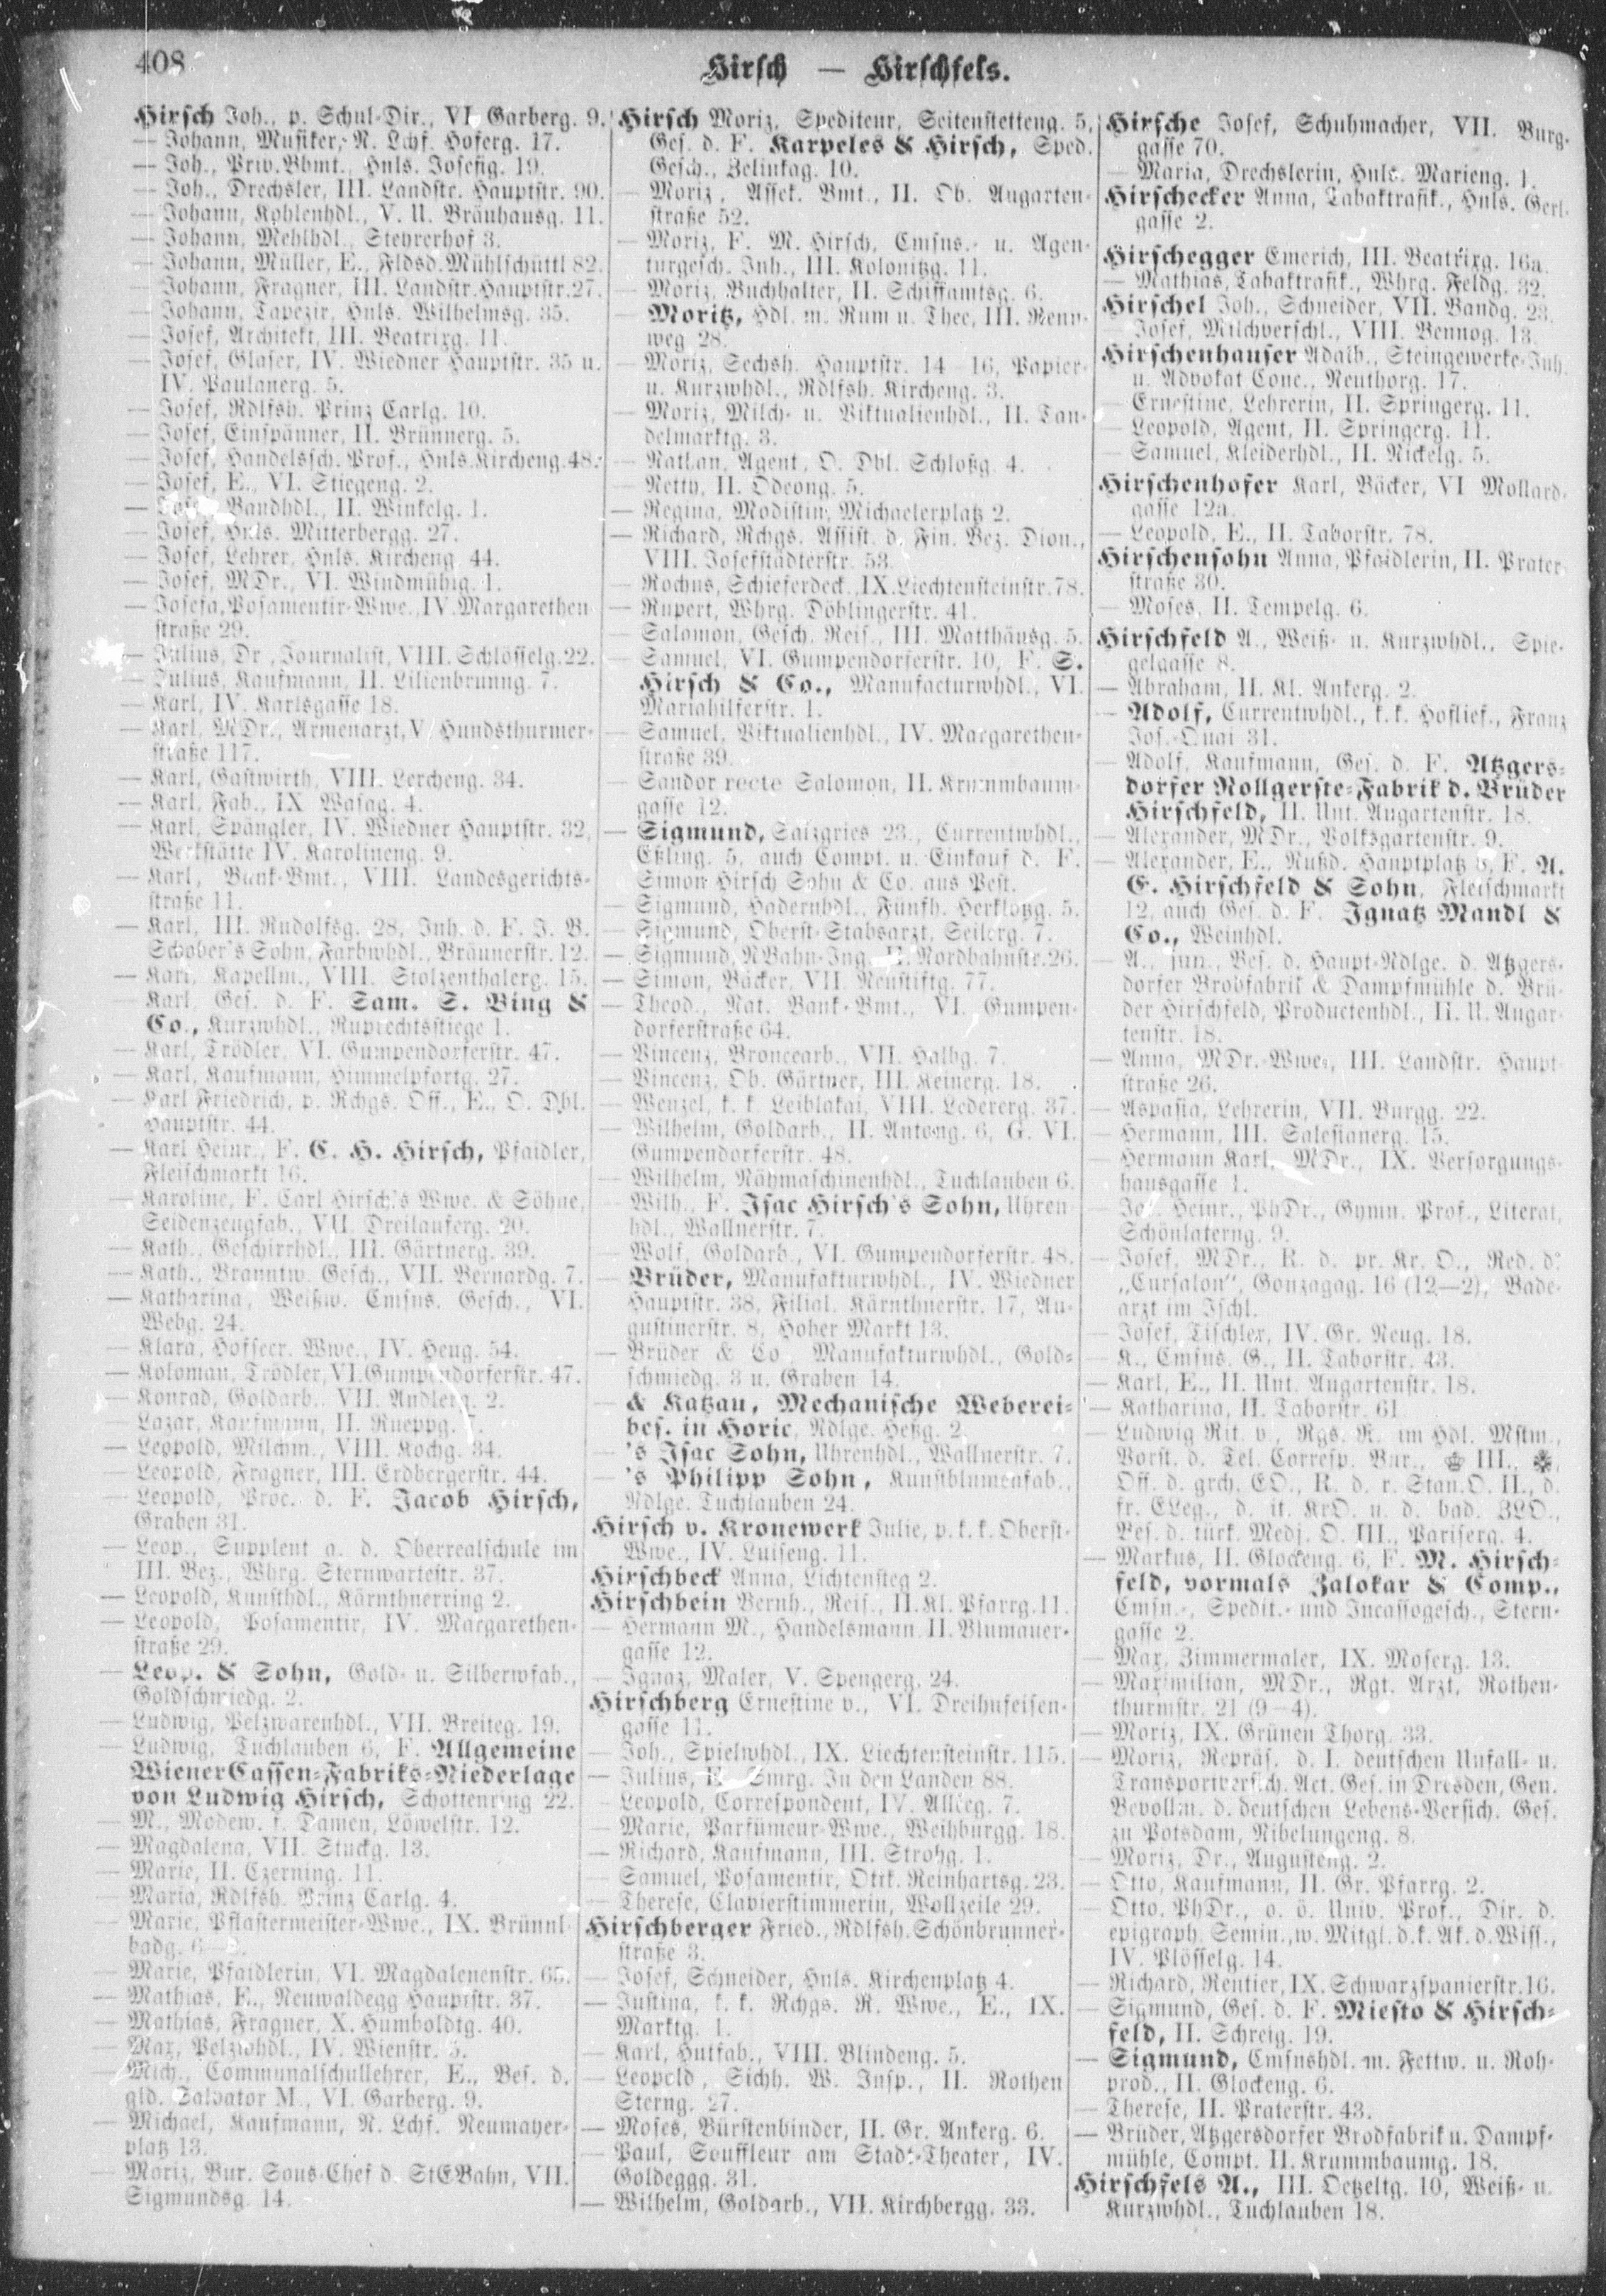 408
Hirsch — Hirschfels.
Hirsch Joh., p. Schul-Dir., VI Garberg. 9.
— Johann, Musiker, N. Lchf. Hoferg. 17.
— Joh., Priv.Bbmt., Hnls. Josefig. 19.
— Joh., Drechsler, III. Landstr. Hauptstr. 90.
— Johann, Kohlenhdl., V. U. Bräuhausg. 11.
— Johann, Mehlhdl., Steyrerhof 3.
— Johann, Müller, E., Fldsd. Mühlschüttl 82.
— Johann, Fragner, III. Landstr. Hauptstr. 27.
— Johann, Tapezir, Hnls. Wilhelmsg. 35.
— Josef, Architekt, III. Beatrixg. 11.
— Josef, Glaser, IV. Wiedner Hauptstr. 35 u.
IV. Paulanerg. 5.
— Josef, Rdlfsh. Prinz Carlg. 10.
— Josef, Einspänner, II. Brünnerg. 5.
— Josef, Handelssch. Prof., Hnls. Kircheng. 48.
— Josef, E., VI. Stiegeng. 2.
— Bandhdl., II. Winkelg. 1.
— Josef, Hnls. Mitterbergg. 27.
— Josef, Lehrer, Hnls. Kircheng. 44.
— Josef, MDr., VI. Windmühlg. 1.
— Josefa, Posamentir-Wwe., IV. Margarethen-
straße 29.
— Julius, Dr., Journalist, VIII. Schlösselg. 22.
— Julius, Kaufmann, II. Lilienbrunng. 7.
— Karl, IV. Karlsgasse 18.
— Karl, MDr., Armenarzt, V. Hundsthurmer-
straße 117.
— Karl, Gastwirth, VIII. Lercheng. 34.
— Karl, Fab., IX. Wasag. 4.
— Karl, Spängler, IV. Wiedner Hauptstr. 32,
Werkstätte IV. Karolineng. 9.
— Karl, Bank-Bmt., VIII. Landesgerichts-
straße 11.
— Karl, III. Rudolfsg. 28, Inh. d. F. J. B.
Schober's Sohn, Farbwhdl., Bräunerstr. 12.
— Karl, Kapellm., VIII. Stolzenthalerg. 15.
Karl, Ges. d. F. Sam. S. Bing &
Co., Kurzwhdl., Ruprechtsstiege 1.
— Karl, Trödler, VI. Gumpendorferstr. 47.
— Karl, Kaufmann, Himmelpfortg. 27.
— Karl Friedrich, p. Rchgs. Off., E., O. Dbl.
Hauptstr. 44.
— Karl Heinr., F. C. H. Hirsch, Pfaidler,
Fleischmarkt 16.
— Karoline, F. Carl Hirsch's Wwe. & Söhne,
Seidenzeugfab., VII. Dreilauferg. 20.
— Kath., Geschirrhdl., III. Gärtnerg. 39.
— Kath., Branntw. Gesch., VII. Bernardg. 7.
— Katharina, Weißw. Cmsns. Gesch., VI.
Webg. 24.
— Klara, Hofsecr. Wwe., IV. Heug. 54.
— Koloman, Trödler, VI. Gumpendorferstr. 47.
— Konrad, Goldarb., VII. Andlerg. 2.
— Lazar, Kaufmann, II. Rueppg. 7.
— Leopold, Milchm., VIII. Kochg. 34.
— Leopold, Fragner, III. Erdbergerstr. 44.
— Leopold, Proc. d. F. Jacob Hirsch,
Graben 31.
— Leop., Supplent a. d. Oberrealschule im
III. Bez., Whrg. Sternwartestr. 37.
— Leopold, Kunsthdl., Kärnthnerring 2.
— Leopold, Posamentir, IV. Margarethen-
straße 29.
— Leop. & Sohn, Gold- u. Silberwfab.,
Goldschmiedg. 2.
— Ludwig, Pelzwarenhdl., VII. Breiteg. 19.
— Ludwig, Tuchlauben 6, F. Allgemeine
Wiener Cassen-Fabriks-Niederlage
von Ludwig Hirsch, Schottenring 22.
— M., Modew. f. Damen, Löwelstr. 12.
— Magdalena, VII. Stuckg. 13.
— Marie, II. Czerning. 11.
— Maria, Rdlfsh. Prinz Carlg. 4.
— Marie, Pflastermeister-Wwe., IX. Brünnl-
badg.
— Marie, Pfaidlerin, VI. Magdalenenstr. 65.
— Mathias, E., Neuwaldegg Hauptstr. 37.
— Mathias, Fragner, X. Humboldtg. 40.
— Max, Pelzwhdl., IV. Wienstr. 5.
— Mich., Communalschullehrer, E., Bes. d.
gld. Salvator M., VI. Garberg. 9.
— Michael, Kaufmann, N. Lchf. Neumayer-
platz 13.
— Moriz, Bur. Sous-Chef d. StEBahn, VII.
Sigmundsg. 14.
Hirsch Moriz, Spediteur, Seitenstetteng. 5,
Ges. d. F. Karpeles & Hirsch, Sped.
Gesch., Zelinkag. 10.
— Moriz, Assek. Bmt., II. Ob. Augarten-
straße 52.
— Moriz, F. M. Hirsch, Cmsns.- u. Agen-
turgesch. Inh., III. Kolonitzg. 11.
— Moriz, Buchhalter, II. Schiffamtsg. 6.
— Moritz, Hdl. m. Rum u. Thee, III. Renn-
weg 28.
— Moriz, Sechsh. Hauptstr. 14—16, Papier-
u. Kurzwhdl., Rdlfsh. Kircheng. 3.
— Moriz, Milch- u. Viktualienhdl., II. Tan-
delmarktg. 3.
— Nathan, Agent, O. Dbl. Schloßg. 4.
— Netty, II. Odeong. 5.
— Regina, Modistin, Michaelerplatz 2.
— Richard, Rchgs. Assist. d. Fin. Bez. Dion.,
VIII. Josefstädterstr. 53.
— Rochus, Schieferdeck., IX. Liechtensteinstr. 78.
— Rupert, Whrg. Döblingerstr. 41.
— Salomon, Gesch. Reis., III. Matthäusg. 5.
— Samuel, VI. Gumpendorferstr. 10, F. S.
Hirsch & Co., Manufacturwhdl., VI.
Mariahilferstr. 1.
— Samuel, Viktualienhdl., IV. Margarethen-
straße 39.
— Sandor recte Salomon, II. Krummbaum-
gasse 12.
— Sigmund, Salzgries 23., Currentwhdl.,
Eßling. 5, auch Compt. u. Einkauf d. F.
Simon Hirsch Sohn & Co. aus Pest.
— Sigmund, Hadernhdl., Fünfh. Herklotzg. 5.
— Sigmund, Oberst-Stabsarzt, Seilerg. 7.
— Sigmund, NBahn-Ing., II. Nordbahnstr. 26.
— Simon, Bäcker, VII. Neustiftg. 77.
— Theod., Nat. Bank-Bmt., VI. Gumpen-
dorferstraße 64.
— Vincenz, Broncearb., VII. Halbg. 7.
— Vincenz, Ob. Gärtner, III. Keinerg. 18.
— Wenzel, k. k. Leiblakai, VIII. Ledererg. 37.
— Wilhelm, Goldarb., II. Antong. 6, G. VI.
Gumpendorferstr. 48.
— Wilhelm, Nähmaschinenhdl., Tuchlauben 6.
— Wilh., F. Isac Hirsch's Sohn, Uhren-
hdl., Wallnerstr. 7.
— Wolf, Goldarb., VI. Gumpendorferstr. 48.
— Brüder, Manufakturwhdl., IV. Wiedner
Hauptstr. 38, Filial. Kärnthnerstr. 17, Au-
gustinerstr. 8, Hoher Markt 13.
— Brüder & Co., Manufakturwhdl., Gold-
schmiedg. 3 u. Graben 14.
— & Katzau, Mechanische Weberei-
bes. in Horic, Ndlge. Heßg. 2.
— 's Isac Sohn, Uhrenhdl., Wallnerstr. 7.
— 's Philipp Sohn, Kunstblumenfab.,
Ndlge. Tuchlauben 24.
Hirsch v. Kronewerk Julie, p. k. k. Oberst-
Wwe., IV. Luiseng. 11.
Hirschbeck Anna, Lichtensteg 2.
Hirschbein Bernh., Reis., II. Kl. Pfarrg. 11.
— Hermann M., Handelsmann, II. Blumauer-
gasse 12.
— Ignaz, Maler, V. Spengerg. 24.
Hirschberg Ernestine v., VI. Dreihufeisen-
gasse 11.
— Joh., Spielwhdl., IX. Liechtensteinstr. 115.
— Julius, Smrg. In den Landen 88.
— Leopold, Correspondent, IV. Alleeg. 7.
— Marie, Parfümeur-Wwe., Weihburgg. 18.
— Richard, Kaufmann, III. Strohg. 1.
— Samuel, Posamentir, Ottk. Reinhartsg. 23.
— Therese, Clavierstimmerin, Wollzeile 29.
Hirschberger Fried., Rdlfsh. Schönbrunner-
straße 3.
— Josef, Schneider, Hnls. Kirchenplatz 4.
— Justina, k. k. Rchgs. R. Wwe., E., IX.
Marktg. 1.
— Karl, Hutfab., VIII. Blindeng. 5.
— Leopold, Sichh. W. Insp., II. Rothen
Sterng. 27.
— Moses, Bürstenbinder, II. Gr. Ankerg. 6.
— Paul, Souffleur am Stadt-Theater, IV.
Goldeggg. 31.
— Wilhelm, Goldarb., VII. Kirchbergg. 33.
Hirsche Josef, Schuhmacher, VII. Burg-
gasse 70.
— Maria, Drechslerin, Hnls. Marieng. 1.
Hirschecker Anna, Tabaktrafik., Hnls. Gerl-
gasse 2.
Hirschegger Emerich, III. Beatrixg. 16a.
— Mathias, Tabaktrafik., Whrg. Feldg. 32.
Hirschel Joh., Schneider, VII. Bandg. 23.
— Josef, Milchverschl., VIII. Bennog. 13.
Hirschenhauser Adalb., Steingewerke-Inh.
u. Advokat Conc., Neuthorg. 17.
— Ernestine, Lehrerin, II. Springerg. 11.
— Leopold, Agent, II. Springerg. 11.
— Samuel, Kleiderhdl., II. Nickelg. 5.
Hirschenhofer Karl, Bäcker, VI Mollard-
gasse 12a.
— Leopold, E., II. Taborstr. 78.
Hirschensohn Anna, Pfaidlerin, II. Prater-
straße 30.
— Moses, II. Tempelg. 6.
Hirschfeld A., Weiß- u. Kurzwhdl., Spie-
gelgasse 8.
— Abraham, II. Kl. Ankerg. 2.
— Adolf, Currentwhdl., k. k. Hoflief., Franz
Jos.-Quai 31.
— Adolf, Kaufmann, Ges. d. F. Atzgers-
dorfer Rollgerste-Fabrik d. Brüder
Hirschfeld, II. Unt. Augartenstr. 18.
— Alexander, MDr., Volksgartenstr. 9.
— Alexander, E., Nußd. Hauptplatz 8, F. A.
E. Hirschfeld & Sohn, Fleischmarkt
12, auch Ges. d. F. Ignatz Mandl &
Co., Weinhdl.
— A., jun., Bes. d. Haupt-Ndlge. d. Atzgers-
dorfer Brodfabrik & Dampfmühle d. Brü-
der Hirschfeld, Productenhdl., II. U. Augar-
tenstr. 18.
— Anna, MDr.-Wwe., III. Landstr. Haupt-
straße 26.
— Aspasia, Lehrerin, VII. Burgg. 22.
— Hermann, III. Salesianerg. 15.
— Hermann Karl, MDr., IX. Versorgungs-
hausgasse 1.
— Jos. Heinr., PhDr., Gymn. Prof., Literat,
Schönlaterng. 9.
— Josef, MDr., R. d. pr. Kr. O., Red. d.
„Cursalon", Gonzagag. 16 (12—2), Bade-
arzt im Ischl.
— Josef, Tischler, IV. Gr. Neug. 18.
— K., Cmsns. G., II. Taborstr. 43.
— Karl, E., II. Unt. Augartenstr. 18.
— Katharina, II. Taborstr. 61.
— Ludwig Rit. v., Rgs. R. im Hdl. Mstm.,
Vorst. d. Tel. Corresp. Bur., III.,
Off. d. grch. EO., R. d. r. Stan. O. II., d.
fr. ELeg., d. it. KrO. u. d. bad. ZLO.,
Bes. d. türk. Medj. O. III., Pariserg. 4.
— Markus, II. Glockeng. 6, F. M. Hirsch-
feld, vormals Zalokar & Comp.,
Cmsn.-, Spedit.- und Incassogesch., Stern-
gasse 2.
— Max, Zimmermaler, IX. Moserg. 13.
— Maximilian, MDr., Rgt. Arzt, Rothen-
thurmstr. 21 (9—4).
— Moriz, IX. Grünen Thorg. 33.
— Moriz, Repräs. d. I. deutschen Unfall- u.
Transportversich. Act. Ges. in Dresden, Gen.
Bevollm. d. deutschen Lebens-Versich. Ges.
zu Potsdam, Nibelungeng. 8.
— Moriz, Dr., Augusteng. 2.
— Otto, Kaufmann, II. Gr. Pfarrg. 2.
— Otto, PhDr., o. ö. Univ. Prof., Dir. d.
epigraph. Semin., w. Mitgl. d. k. Ak. d. Wiss.,
IV. Plösselg. 14.
— Richard, Rentier, IX. Schwarzspanierstr. 16.
— Sigmund, Ges. d. F. Miesto & Hirsch-
feld, II. Schreig. 19.
— Sigmund, Cmsnshdl. m. Fettw. u. Roh-
prod., II. Glockeng. 6.
— Therese, II. Praterstr. 43.
— Brüder, Atzgersdorfer Brodfabrik u. Dampf-
mühle, Compt. II. Krummbaumg. 18.
Hirschfels A., III. Oetzeltg. 10, Weiß- u.
Kurzwhdl., Tuchlauben 18.